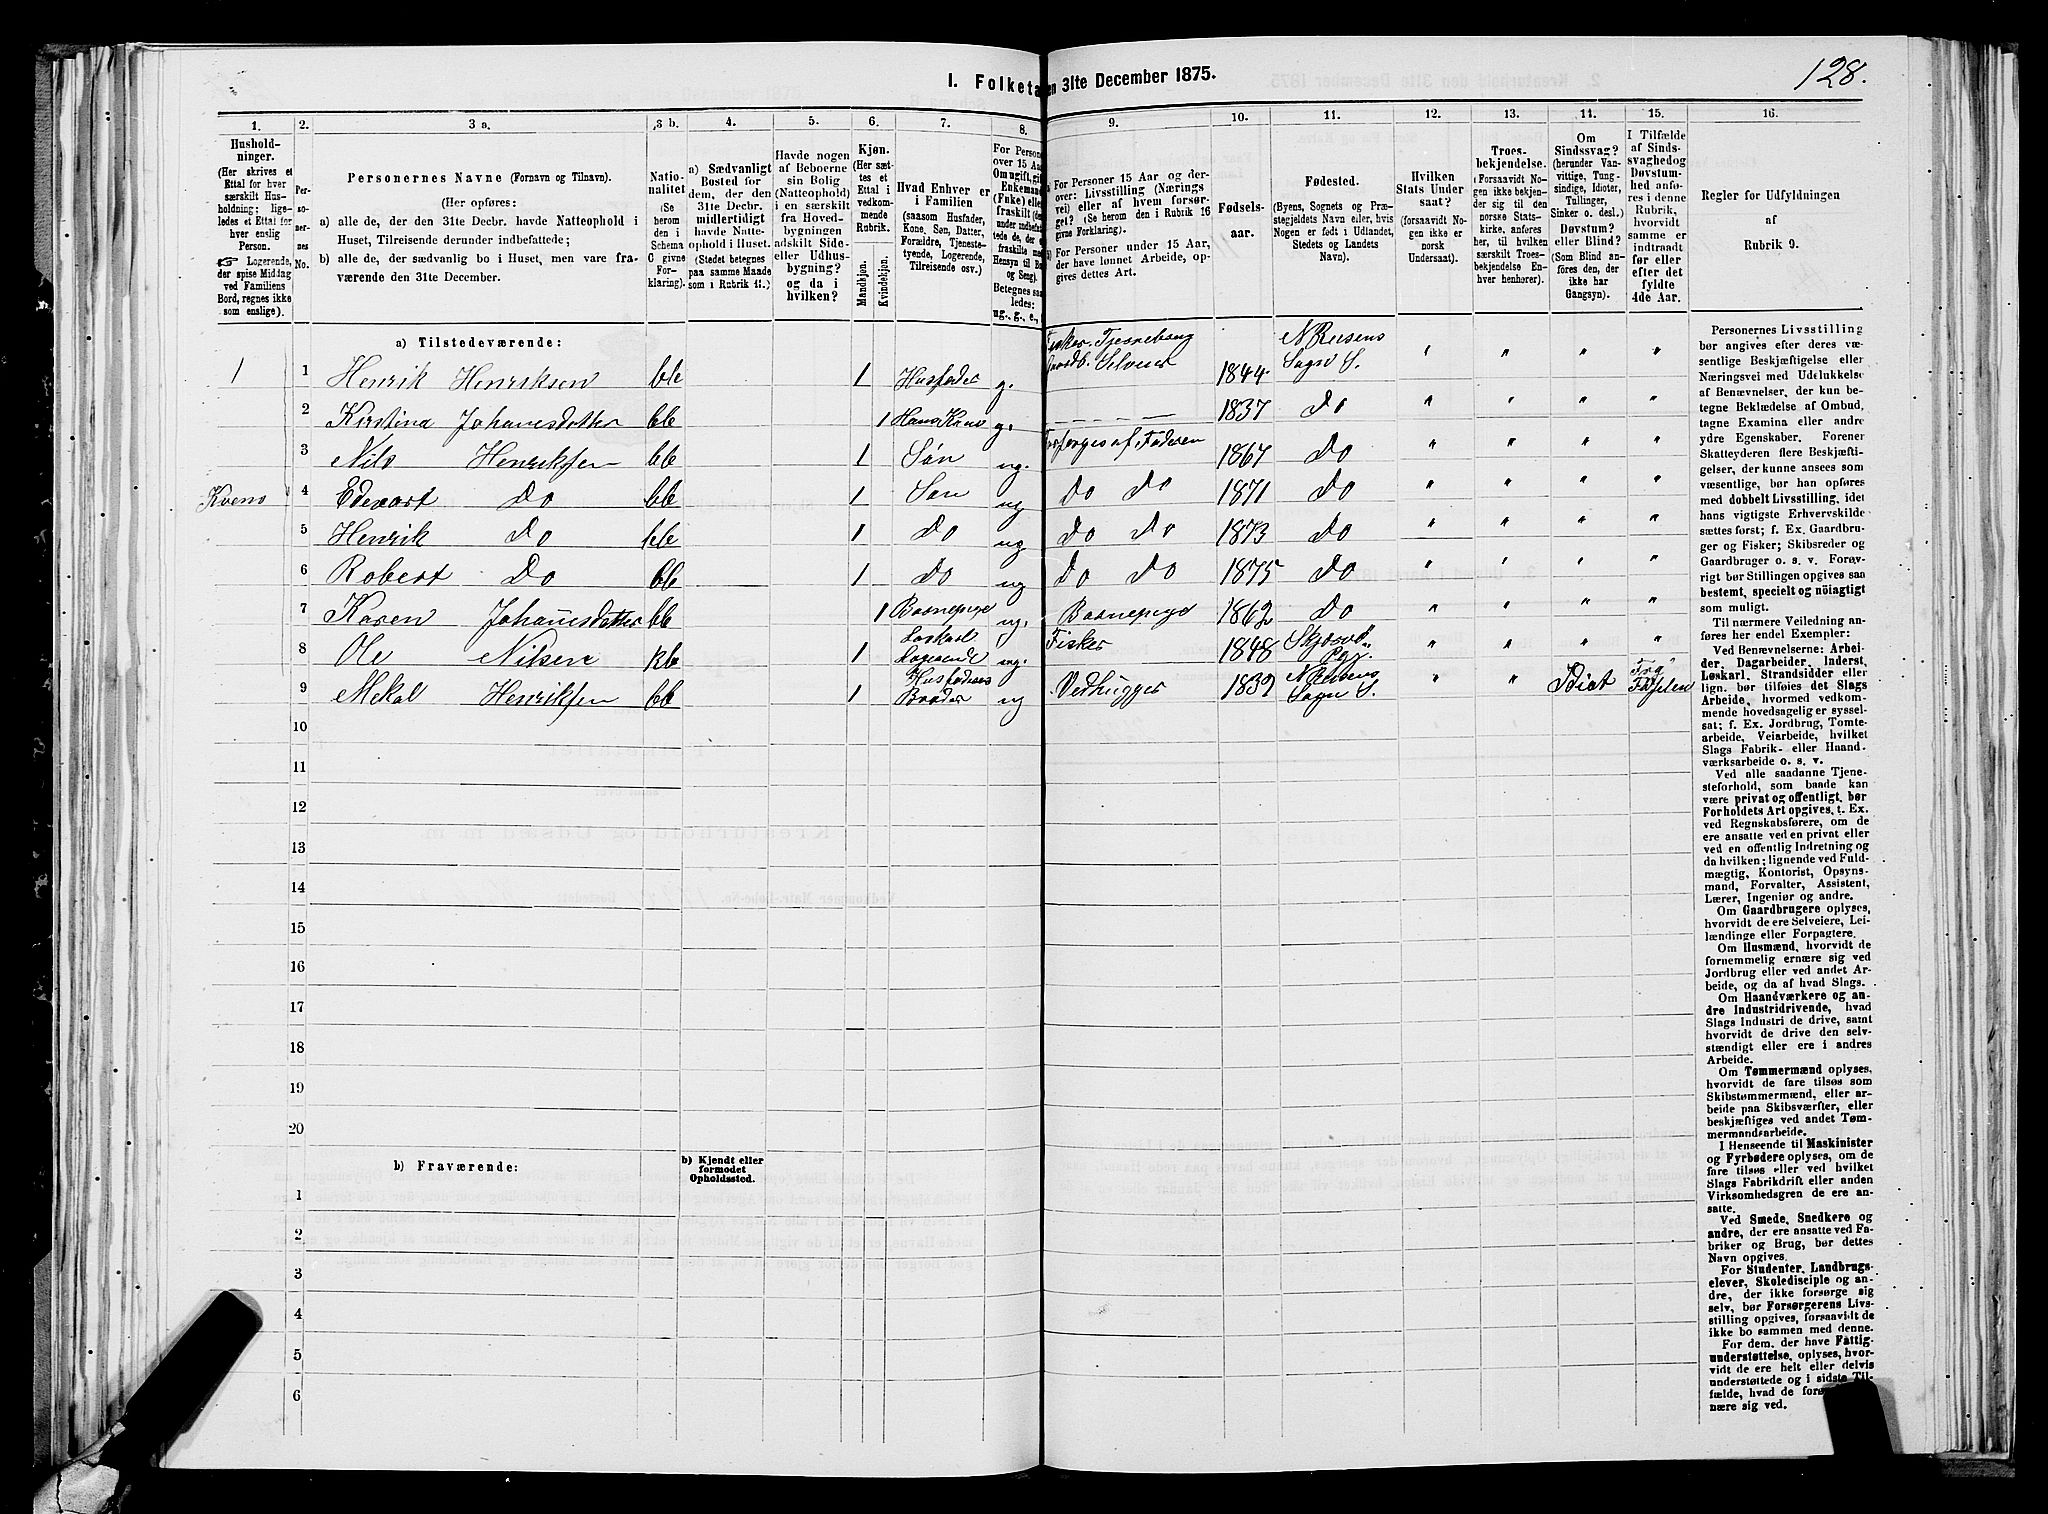 128.
I. Folketa
en 31te December 1875.
1.
2.
3 a.
3 b.
4.
5.
6.
7.
8.
9.
10.
11.
12.
13.
14.
15.
16.
Husholdninger.
(Her skrives et
Ettal for hver
særskilt Husholdning;
ligeledes et Ettal for
hver enslig
Person.
☞ Logerende,
der spise Middag
ved Familiens
Bord, regnes ikke
som enslige).
Personernes No.
Personernes Navne (Fornavn og Tilnavn).
(Her opføres:
a) alle de, der den 31te Decbr. havde Natteophold i
Huset, Tilreisende derunder indbefattede;
b) alle de, der sædvanlig bo i Huset, men vare fraværende
den 31te December.
Nationalitet
(Se
herom
den i
Schema
C givne
Forklaring).
a) Sædvanligt
Bosted for
dem, der den
31te Decbr.
midlertidigt
havde Natteophold
i Huset.
(Stedet betegnes
paa samme Maade
som i Rubrik 11.)
Havde nogen
af Beboerne
sin Bolig
(Natteophold)
i en særskilt
fra Hovedbygningen
adskilt Side-
eller Udhusbygning?
og da i
hvilken?
Kjøn.
(Her sættes
et
Ettal i
vedkommende
Rubrik.
Mandkjøn.
Kvindekjøn.
Hvad Enhver er
i Familien
(saasom Husfader,
Kone, Søn, Datter,
Forældre, Tjenestetyende,
Logerende,
Tilreisende osv.)
For Person
over 15 Aar
Om ugift, gift
Enkemand
(Enke) eller
fraskilt
ug., g., e.,
For Personer 15 Aar og derover:
Livsstilling (Næringsvei)
eller af hvem forsørget?
(Se herom den i Rubrik 16
givne Forklaring).
For Personer under 15 Aar,
der have lønnet Arbeide, opgives
dettes Art.
Fødselsaar.
Fødested.
(Byens, Sognets og Præstegjeldets
Navn eller, hvis
Nogen er født i Udlandet,
Stedets og Landets
Navn).
Hvilken
Stats Undersaat?
(forsaavidt Nogen
ikke er
norsk
Undersaat).
Troesbekjendelse.
(Forsaavidt Nogen
ikke bekjender
sig til den
norske Statskirke,
anføres
her, til hvilken
særskilt Troesbekjendelse
Enhver
henhører).
Om
Sindssvag?
(herunder Vanvittige,
Tungsindige,
Idioter,
Tullinger,
Sinker o. desl.)
Døvstum?
eller Blind?
(Som Blind anføres
den, der
ikke har
Gangsyn).
I Tilfælde
af Sindssvaghed
og
Døvstumhed
anføres
i denne
Rubrik,
hvorvidt
samme er
indtraadt
før eller
efter det
fyldte
4de Aar.
Regler for Udfyldningen
af
Rubrik 9.
a) Tilstedeværende:
1 1 Henrik Henriksen 1 Husfader g. 1844. Sogn S.
2 Kirstina 1 g. 1837 Do
3 Nils Henriksen 1 Søn ug. Forsørges af Faderen 1867 Do
Kvens 4 Edevart Do 1 Søn ug Do Do 1871 Do
5 Henrik Do 1 Do ug Do Do 1873 Do
6 Robert Do 1 Do ug Do Do 1875 Do
7 Karen 1 Barnepige ug. Barnepige 1862 Do
8 Ole Nilsen 1 Løskarl Logerende ug. Fisker 1848
9 Mekal Henriksen 1 Husfaders Broder ug Vedhugger 1832 Sogn S.
10
11
12
13
14
15
16
17
18
19
20
b) Fraværende:
b) Kjendt eller
formodet
Opholdssted.
1
2
3
4
5
6
Personernes Livsstilling
bør angives efter deres væsentlige
Beskjæftigelse eller
Næringsvei med Udelukkelse
af Benævnelser, der kun betegne
Beklædelse af Ombud,
tagne Examina eller andre
ydre Egenskaber. Forener
Skatteyderen flere Beskjæftigelser,
der kunne ansees som
væsentlige, bør han opføres
med dobbelt Livsstilling, idet
hans vigtigste Erhvervskilde
sættes først; f. Ex. Gaardbruger
og Fisker; Skibsreder og
Gaardbruger o. s. v. Forøvrigt
bør Stillingen opgives saa
bestemt, specielt og nøiagtigt
som muligt.
Til nærmere Veiledning anføres
her endel Exempler:
Ved Benævnelserne: Arbeider,
Dagarbeider, Inderst,
Løskarl, Strandsidder eller
lign. bør tilføies det Slags
Arbeide, hvormed vedkommende
hovedsagelig er sysselsat;
f. Ex. Jordbrug, Tomtearbeide,
Veiarbeide, hvilket
Slags Fabrik- eller Haandværksarbeide
o. s. v.
Ved alle saadanne Tjenesteforhold,
som baade kan
være privat og offentligt, bør
Forholdets Art opgives, t. Ex.
ved Regnskabsførere, om de
ere ansatte ved en privat eller
ved en offentlig Indretning og
da hvilken; lignende ved Fuldmægtig,
Kontorist, Opsynsmand,
Forvalter, Assistent,
Lærer, Ingeniør og andre.
Om Gaardbrugere oplyses,
hvorvidt de ere Selveiere, Leilændinge
eller Forpagtere.
Om Husmænd, hvorvidt de
fornemmelig ernære sig ved
Jordbrug eller ved andet Arbeide,
og da af hvad Slags.
Om Haandværkere og andre
Industridrivende, hvad
Slags Industri de drive, samt
hvorvidt de drive den selvstændigt
eller ere i andres
Arbeide.
Om Tømmermænd oplyses,
hvorvidt de fare tilsøs som
Skibstømmermænd, eller arbeide
paa Skibsværfter, eller
beskjæftiges ved andet Tømmermandsarbeide.
I Henseende til Maskinister
og Fyrbødere oplyses, om de
fare tilsøs eller ved hvilket
Slags Fabrikdrift eller anden
Virksomhedsgren de ere ansatte.
Ved Smede, Snedkere og
andre, der ere ansatte ved Fabriker
og Brug, bør dettes
Navn opgives.
For Studenter, Landbrugselever,
Skoledisciple og andre,
der ikke forsørge sig
selv, bør Forsørgerens Livsstilling
opgives, forsaavidt de
ikke bo sammen med denne.
For dem, der have Fattigunderstøttelse,
oplyses, hvorvidt
de ere helt eller delvis
understøttede og i sidste Tilfælde,
hvad de
nære sig ved.